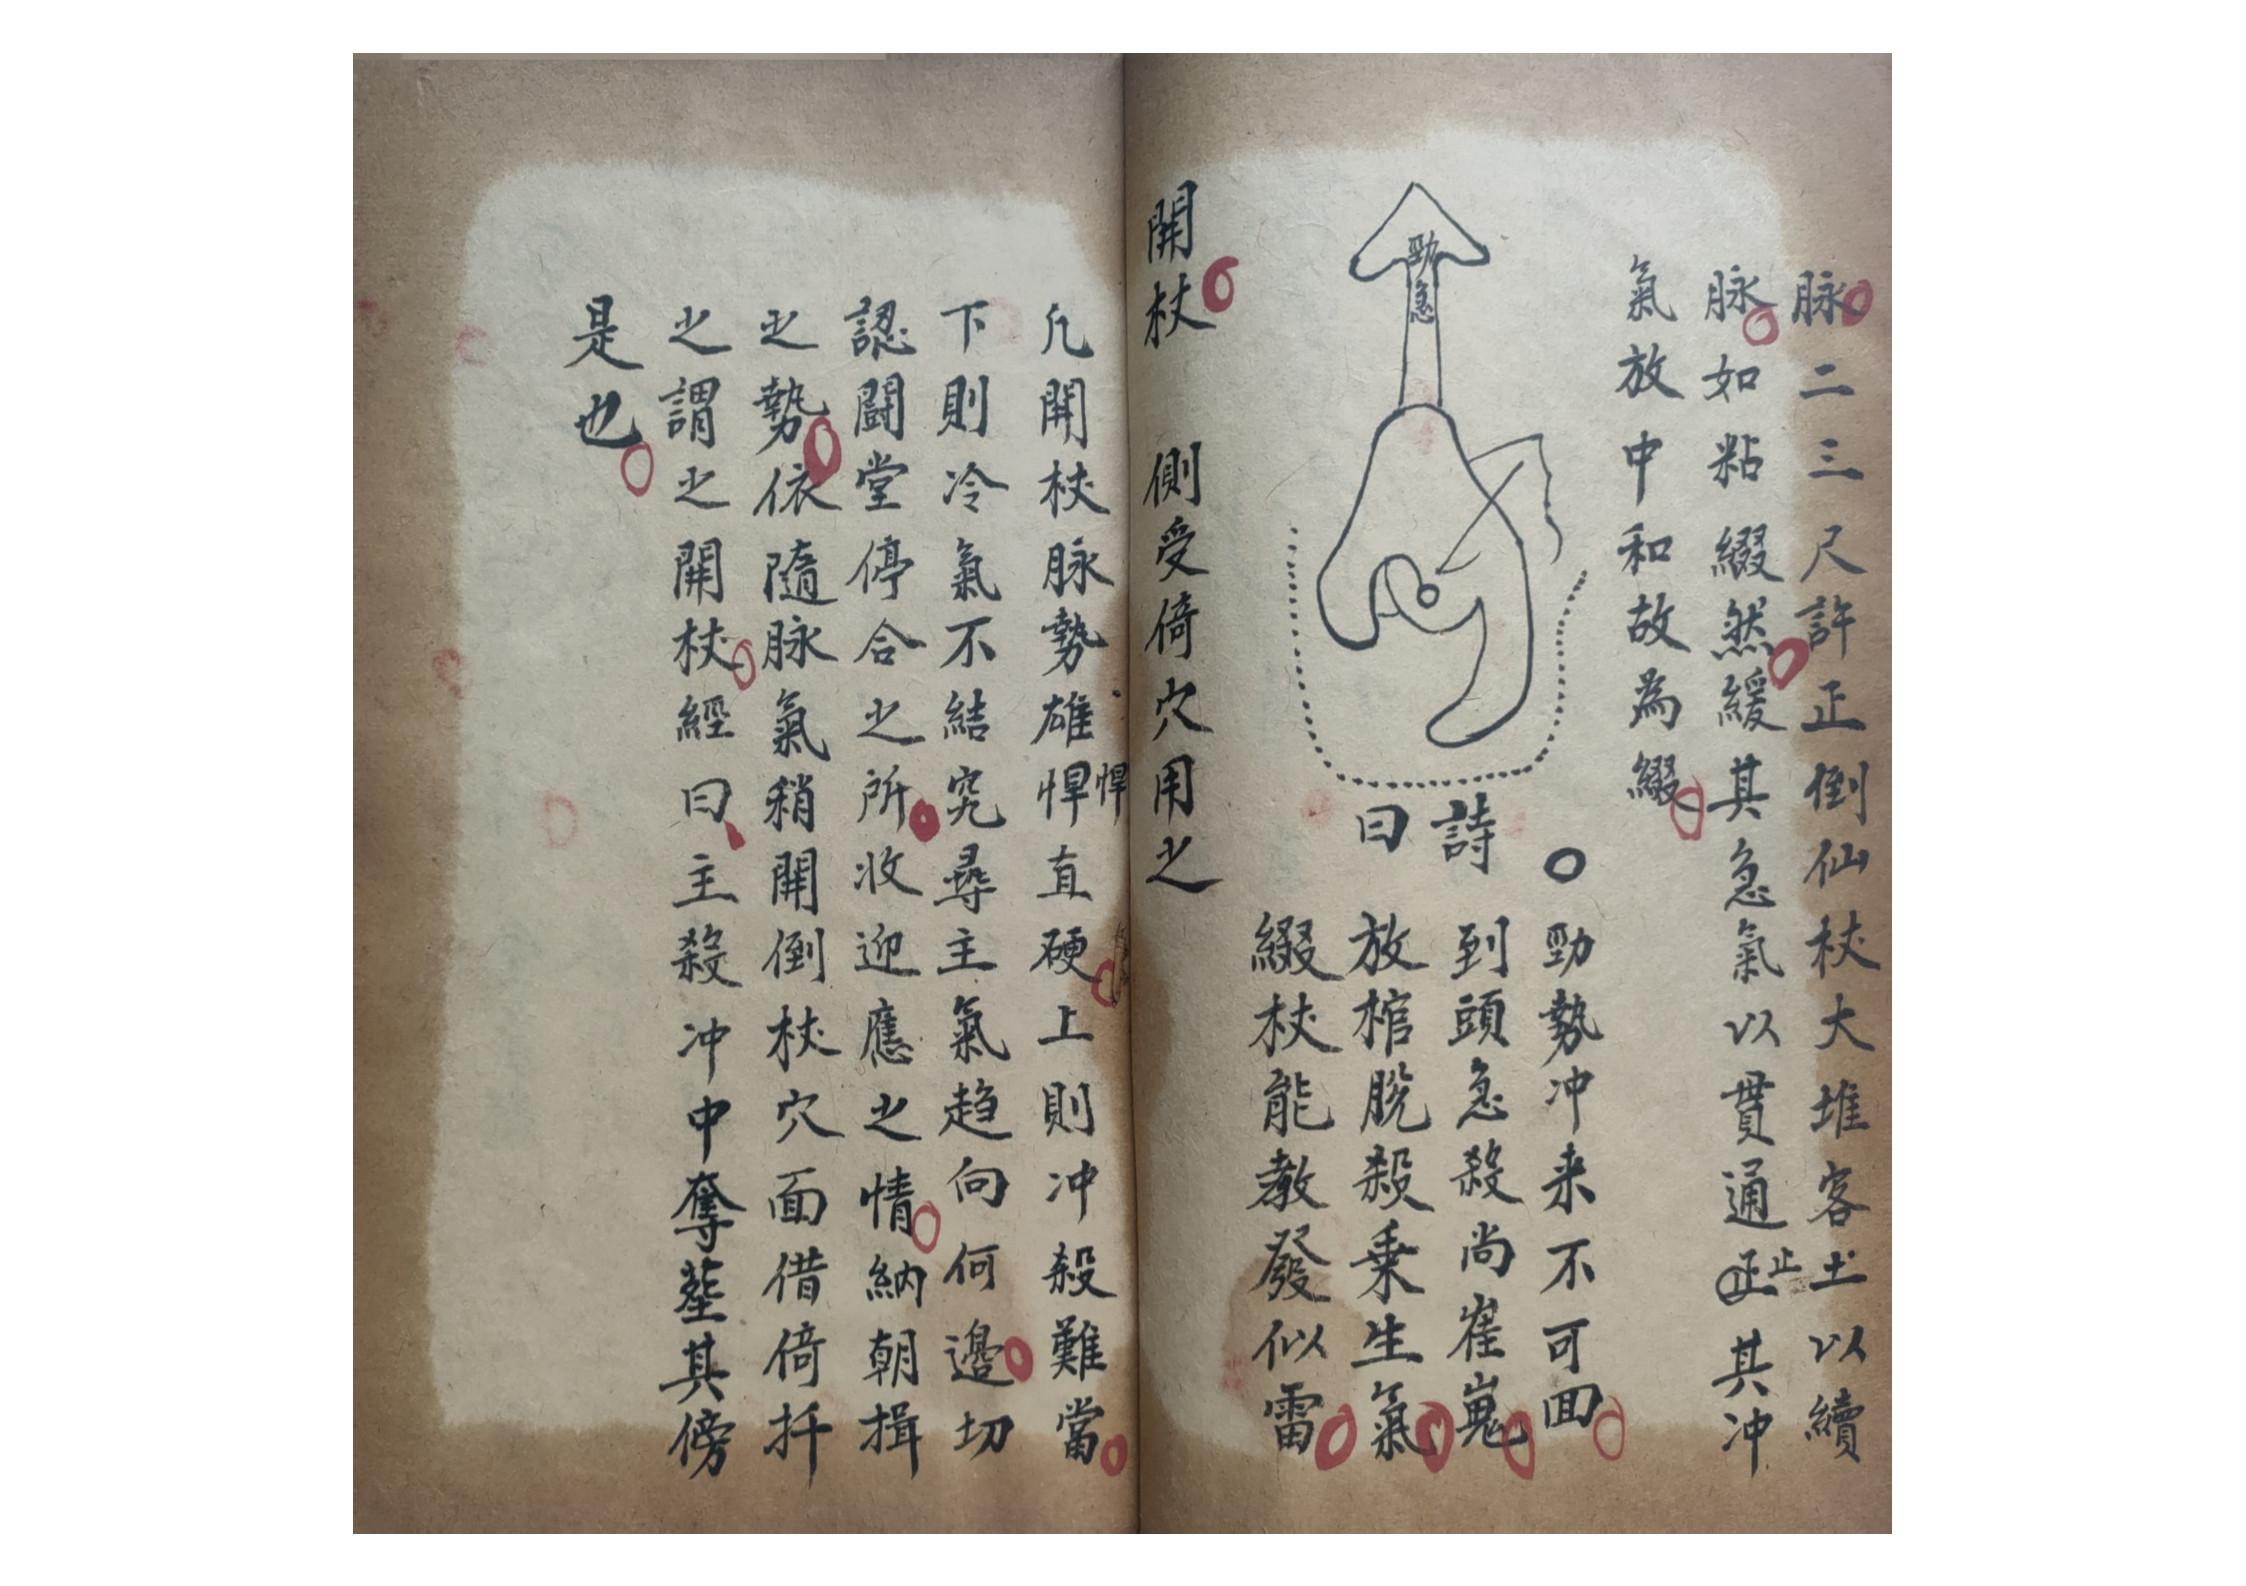 脉二三尺許正倒仙杖大堆客土以續
脉如粘綴然緩其急氣以貫通正止其冲
氣放中和故為綴
勁急
詩曰
勁勢冲来不可回
到頭急殺尚崔嵬
放棺脫殺乗生氣
綴杖能教發似雷
開杖 側受倚穴用之
凢開杖脉勢雄悍悍直硬上則冲殺難當
下則冷氣不結究尋主氣趋向何邊切
認闘堂停合之所收迎應之情納朝揖
之勢依隨脉氣稍開倒杖穴面借倚扦
之謂之開杖經曰主殺冲中奪塟其傍
是也